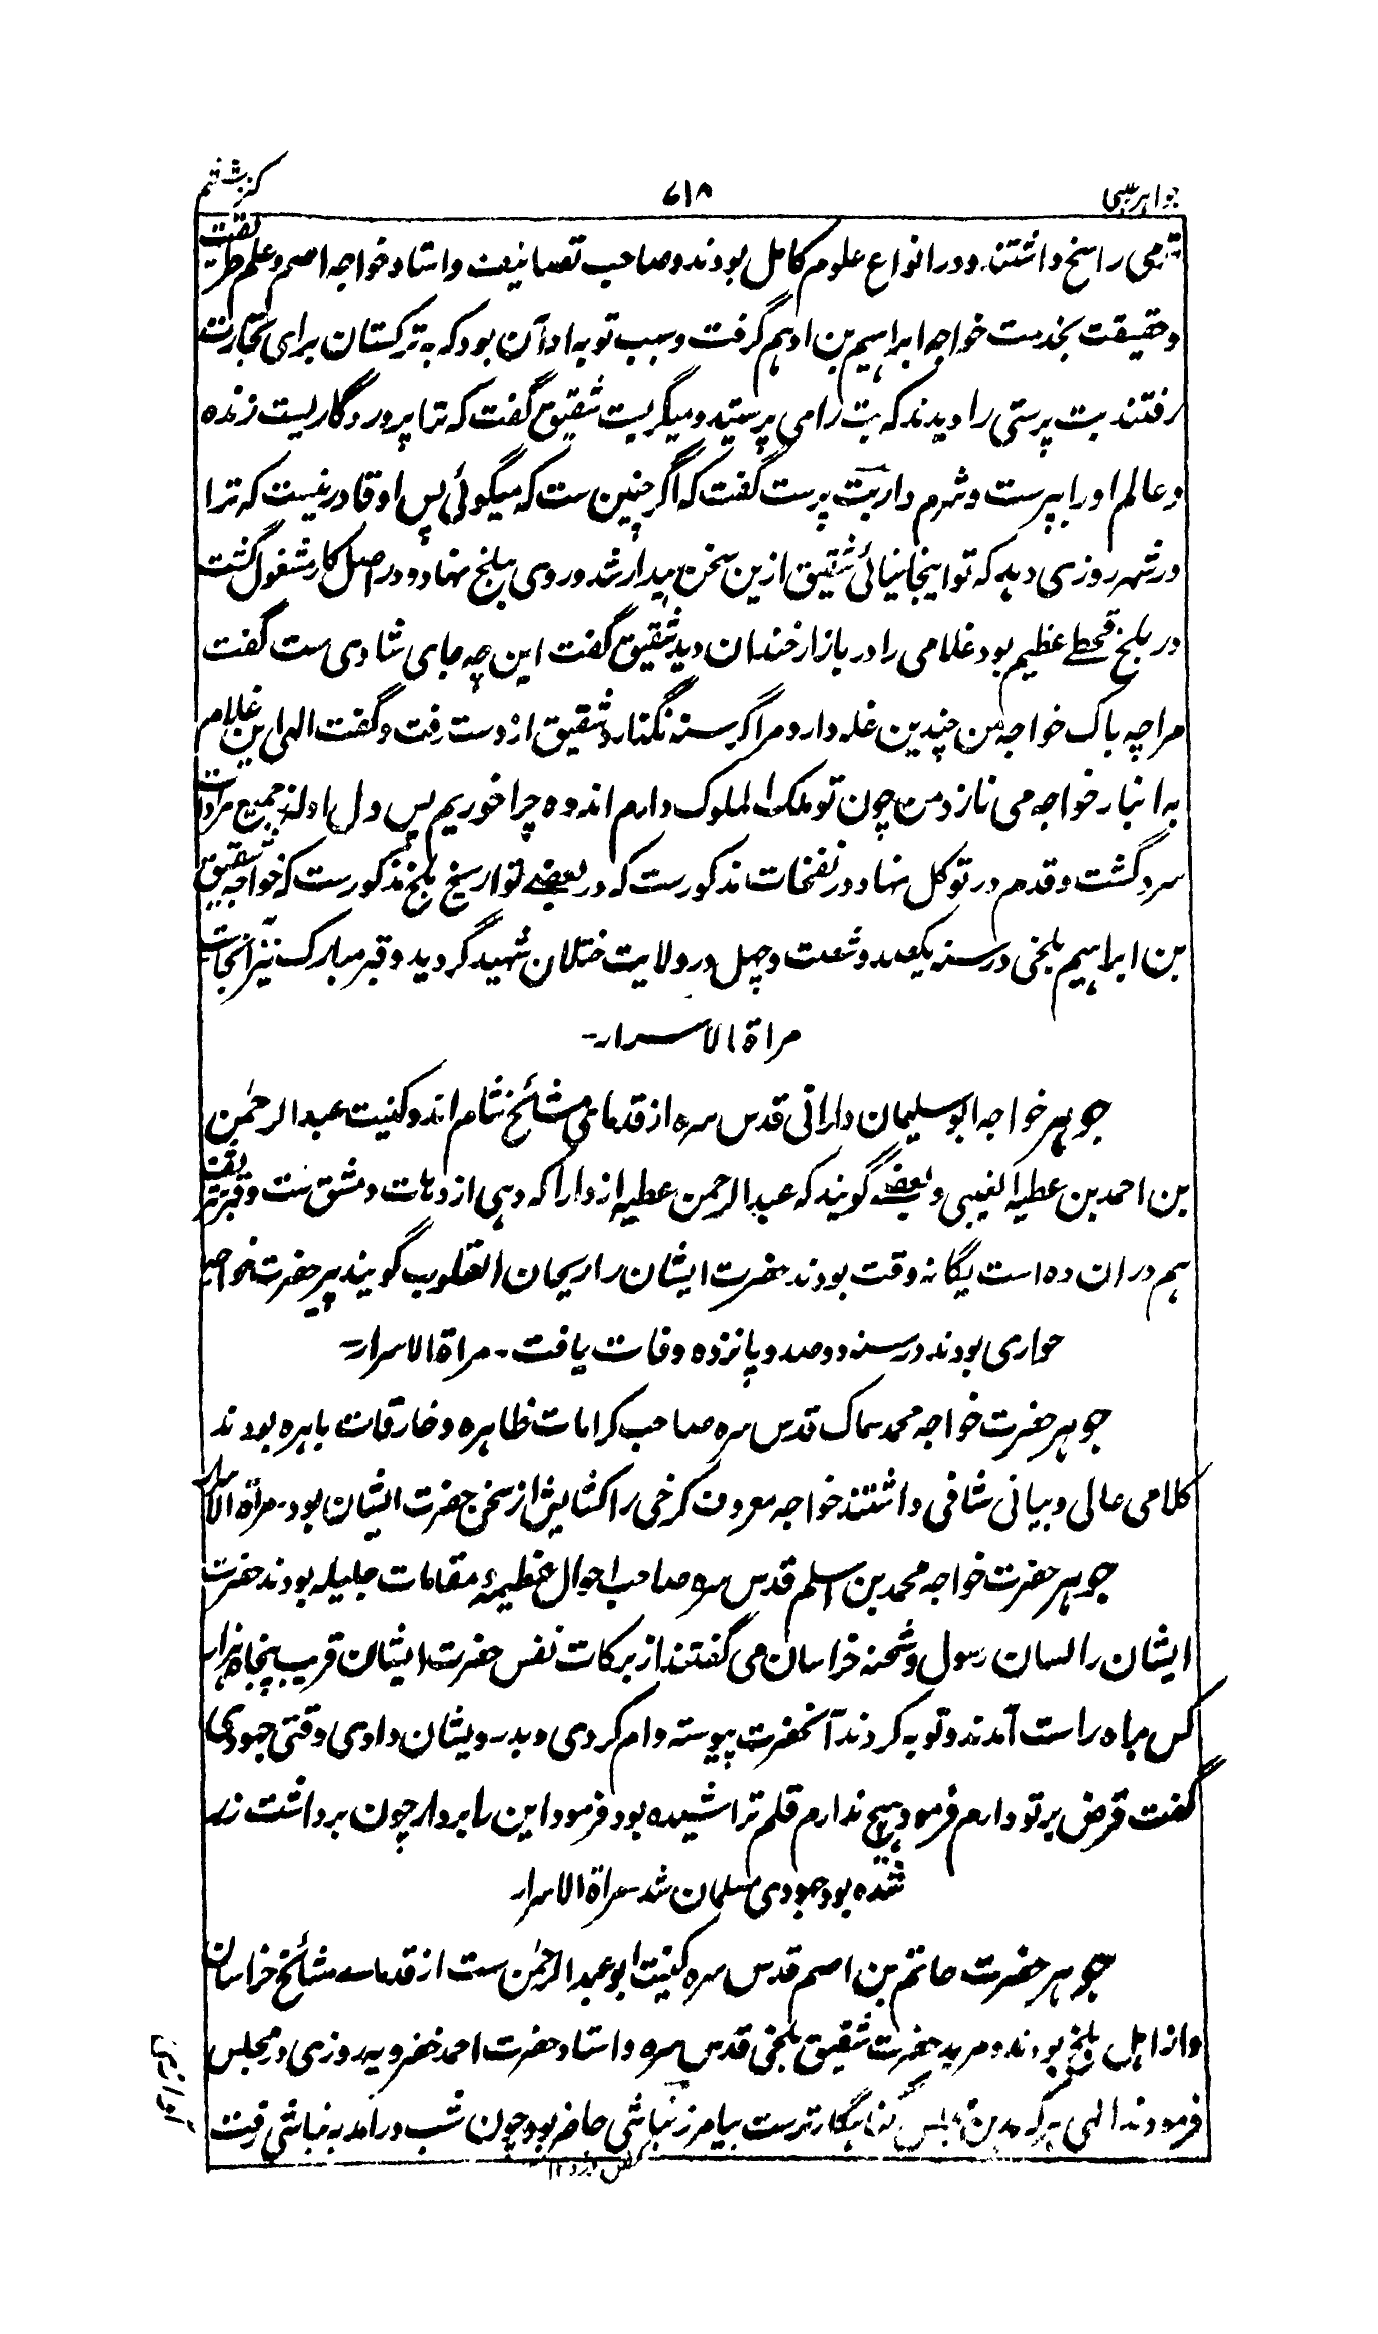 جواهر غیبی
۶۱۸
کنز ششم
قدمی راسخ داشتند و در انواع علوم کامل بودند و صاحب تصانیف و استاد خواجه اصم و علم طریقت
و حقیقت بخدمت خواجه ابراهیم بن ادهم گرفت و سبب توبه او آن بود که به ترکستان برای تجارت
رفتند بت پرستی را دیدند که بت را می پرستید و میگریست شقیق گفت که ترا پروردگاریست زنده
و عالم او را بپرست و شرم دار بت پرست گفت که اگر چنین ست که میگوئی پس او قادر نیست که ترا
در شهر روزی دهد که تو اینجا نیائی شقیق ازین سخن بیدار شد و روی ببلخ نهاد و در اصل کار مشغول گشت
در بلخ قحطے عظیم بود غلامی را در بازار خندان دید شقیق گفت این چه جای شادی ست گفت
مرا چه باک خواجه من چندین غله دارد مرا گرسنه نگذارد شقیق از دست رفت و گفت الهی این غلام
به انبار خواجه می نازد من چون تو ملک الملوک دارم اندوه چرا خوریم پس دل او از جمیع مرادات
سرد گشت و قدم در توکل نهاد در نفخات مذکورست که در بعضے تواریخ بلخ مذکورست که خواجه شقیق
بن ابراهیم بلخی در سنه یکصد و شصت و چهل در ولایت ختلان شهید گردید و قبر مبارک نیز آنجاست
مراة الاسرار-
جوهر خواجه ابو سلیمان دارانی قدس سره از قدمای مشائخ شام اند و کنیت عبد الرحمٰن
بن احمد بن عطیه الغیبی و بعضے گویند که عبد الرحمن عطیه از دارا که دهی از دهات دمشق ست و قبر شریف
هم در ان ده است یگانه وقت بودند حضرت ایشان را ریحان القلوب گویند پیر حضرت خواجه
حواری بودند در سنه دو صد و پانزده وفات یافت- مراة الاسرار-
جوهر حضرت خواجه محمد سماک قدس سره صاحب کرامات ظاهره و خارقات باهره بودند
کلامی عالی و بیانی شافی داشتند خواجه معروف کرخی را کشایش از سخن حضرت ایشان بود- مراة الاسرار
جوهر حضرت خواجه محمد بن اسلم قدس سره صاحب احوال عظیمه و مقامات جلیله بودند حضرت
ایشان را لسان رسول و شحنه خراسان می گفتند از برکات نفس حضرت ایشان قریب پنجاه هزار
کس براه راست آمدند و توبه کردند آنحضرت پیوسته وام کردی و بدرویشان دادی وقتی جهودی
گفت قرض بر تو دارم فرمود هیچ ندارم قلم تراشیده بود فرمود این را بردار چون برداشت زر
شده بود جهودی مسلمان شد مراة الاسرار
جوهر حضرت حاتم بن اصم قدس سره کنیت ابو عبد الرحمٰن ست از قدمائے مشائخ خراسان
و از اهل بلخ بودند و مرید حضرت شقیق بلخی قدس سره و استاد حضرت احمد خضرویه روزی در مجلس
فرمودند الهی هر که درین مجلس گناهگارترست بیامرز نباشی حاضر بود چون شب درآمد به نباشی رفت
کفن دزد ۱۲